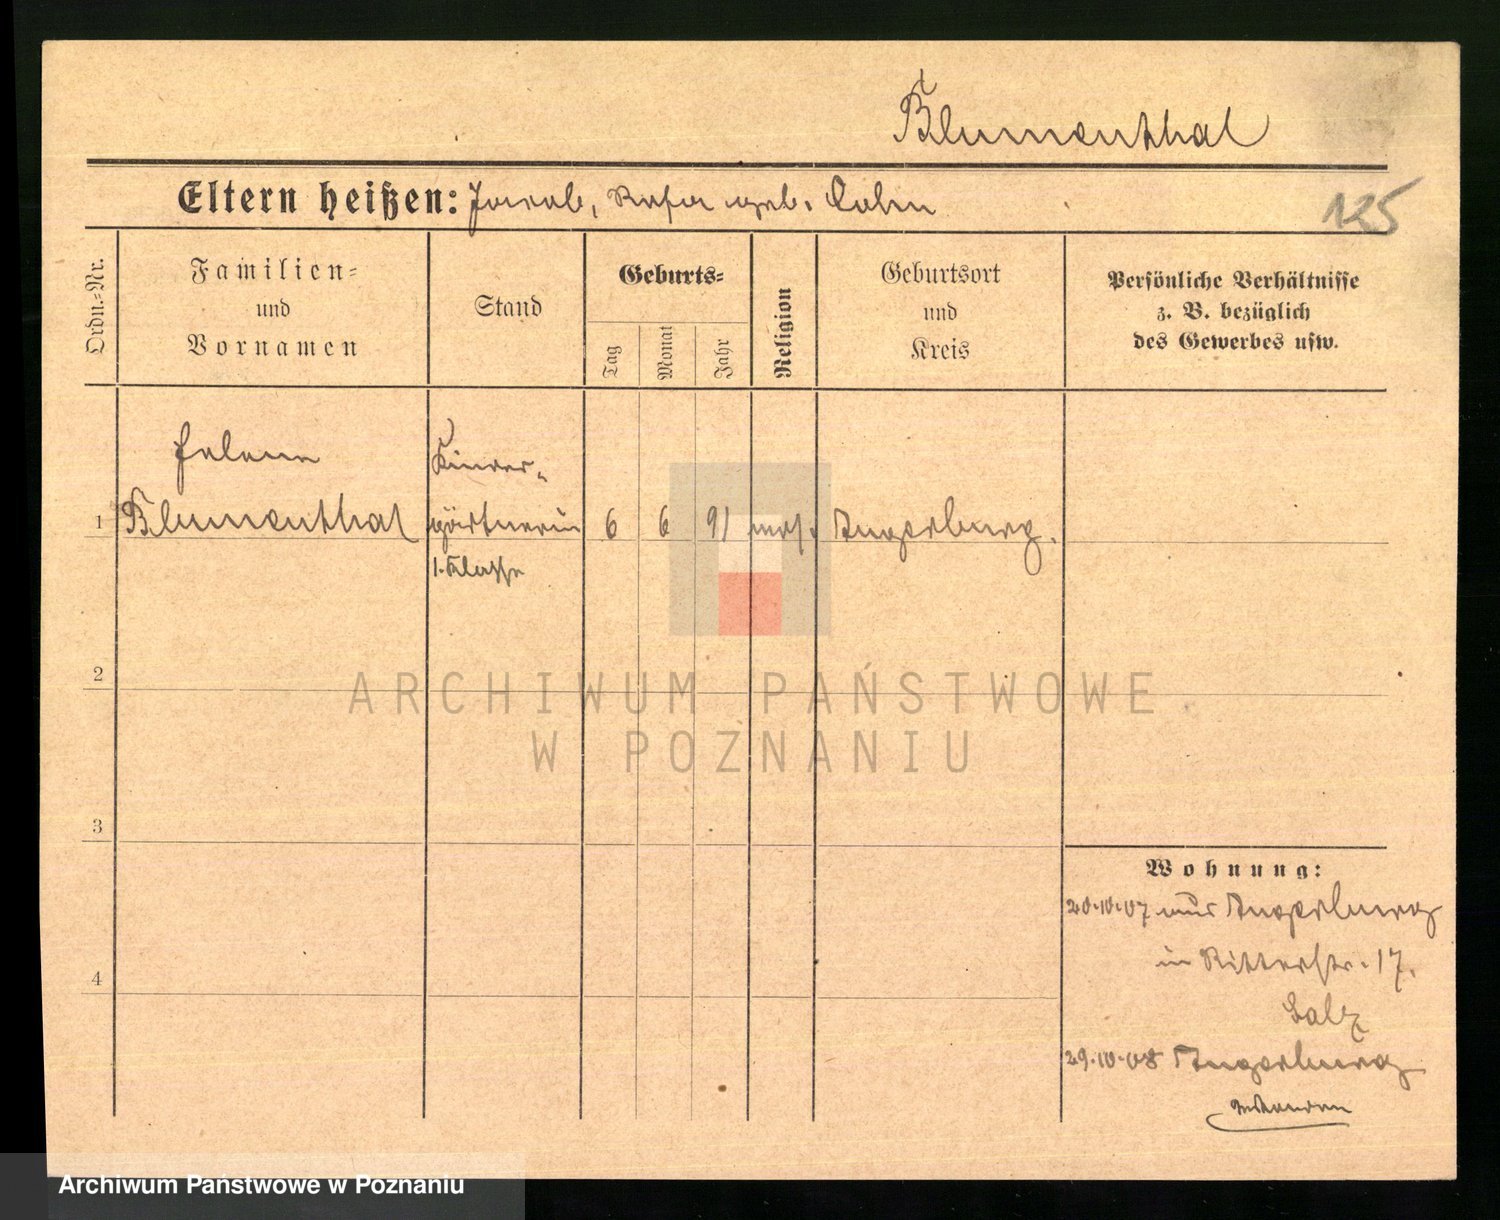 Blumenthal
Eltern heißen: Jacob, Rosa geb. Cohn
125
Ordn.-Nr.
Familien-
und
Vornamen
Stand
Geburts-
Tag
Monat
Jahr
Religion
Geburtsort
und
Kreis
Persönliche Verhältnisse
z. B. bezüglich
des Gewerbes usw.
1
Helene
Blumenthal
Kinder-
gärtnerin
1. Klasse
6 6 91 mos. Angerburg.
2
3
4
ARCHIWUM PAŃSTWOWE
W POZNANIU
Wohnung:
20.10.07 aus Angerburg
in Ritterstr. 17.
Salz
29.10.08 Angerburg
Archiwum Państwowe w Poznaniu